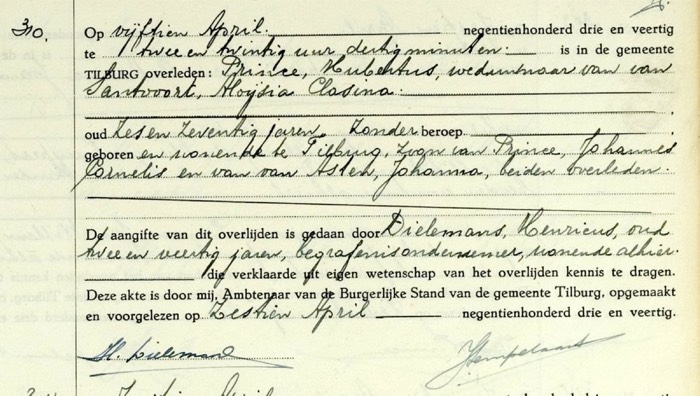 310.
Op vijftien April. negentienhonderd drie en veertig
te twee en twintig uur dertig minuten: is in de gemeente
TILBURG overleden: Prince, Hubertus, weduwnaar van van
Santvoort, Aloÿsia Clasina.
oud zes en zeventig jaren, zonder beroep,
geboren en wonende te Tilburg, zoon van Prince, Johannes
Cornelis en van van Asten, Johanna, beiden overleden.
De aangifte van dit overlijden is gedaan door Dielemans, Henricus, oud
twee en veertig jaren, begrafenisondernemer, wonende alhier.
die verklaarde uit eigen wetenschap van het overlijden kennis te dragen.
Deze akte is door mij, Ambtenaar van de Burgerlijke Stand van de gemeente Tilburg, opgemaakt
en voorgelezen op zestien April negentienhonderd drie en veertig.
H. Dielemans
April